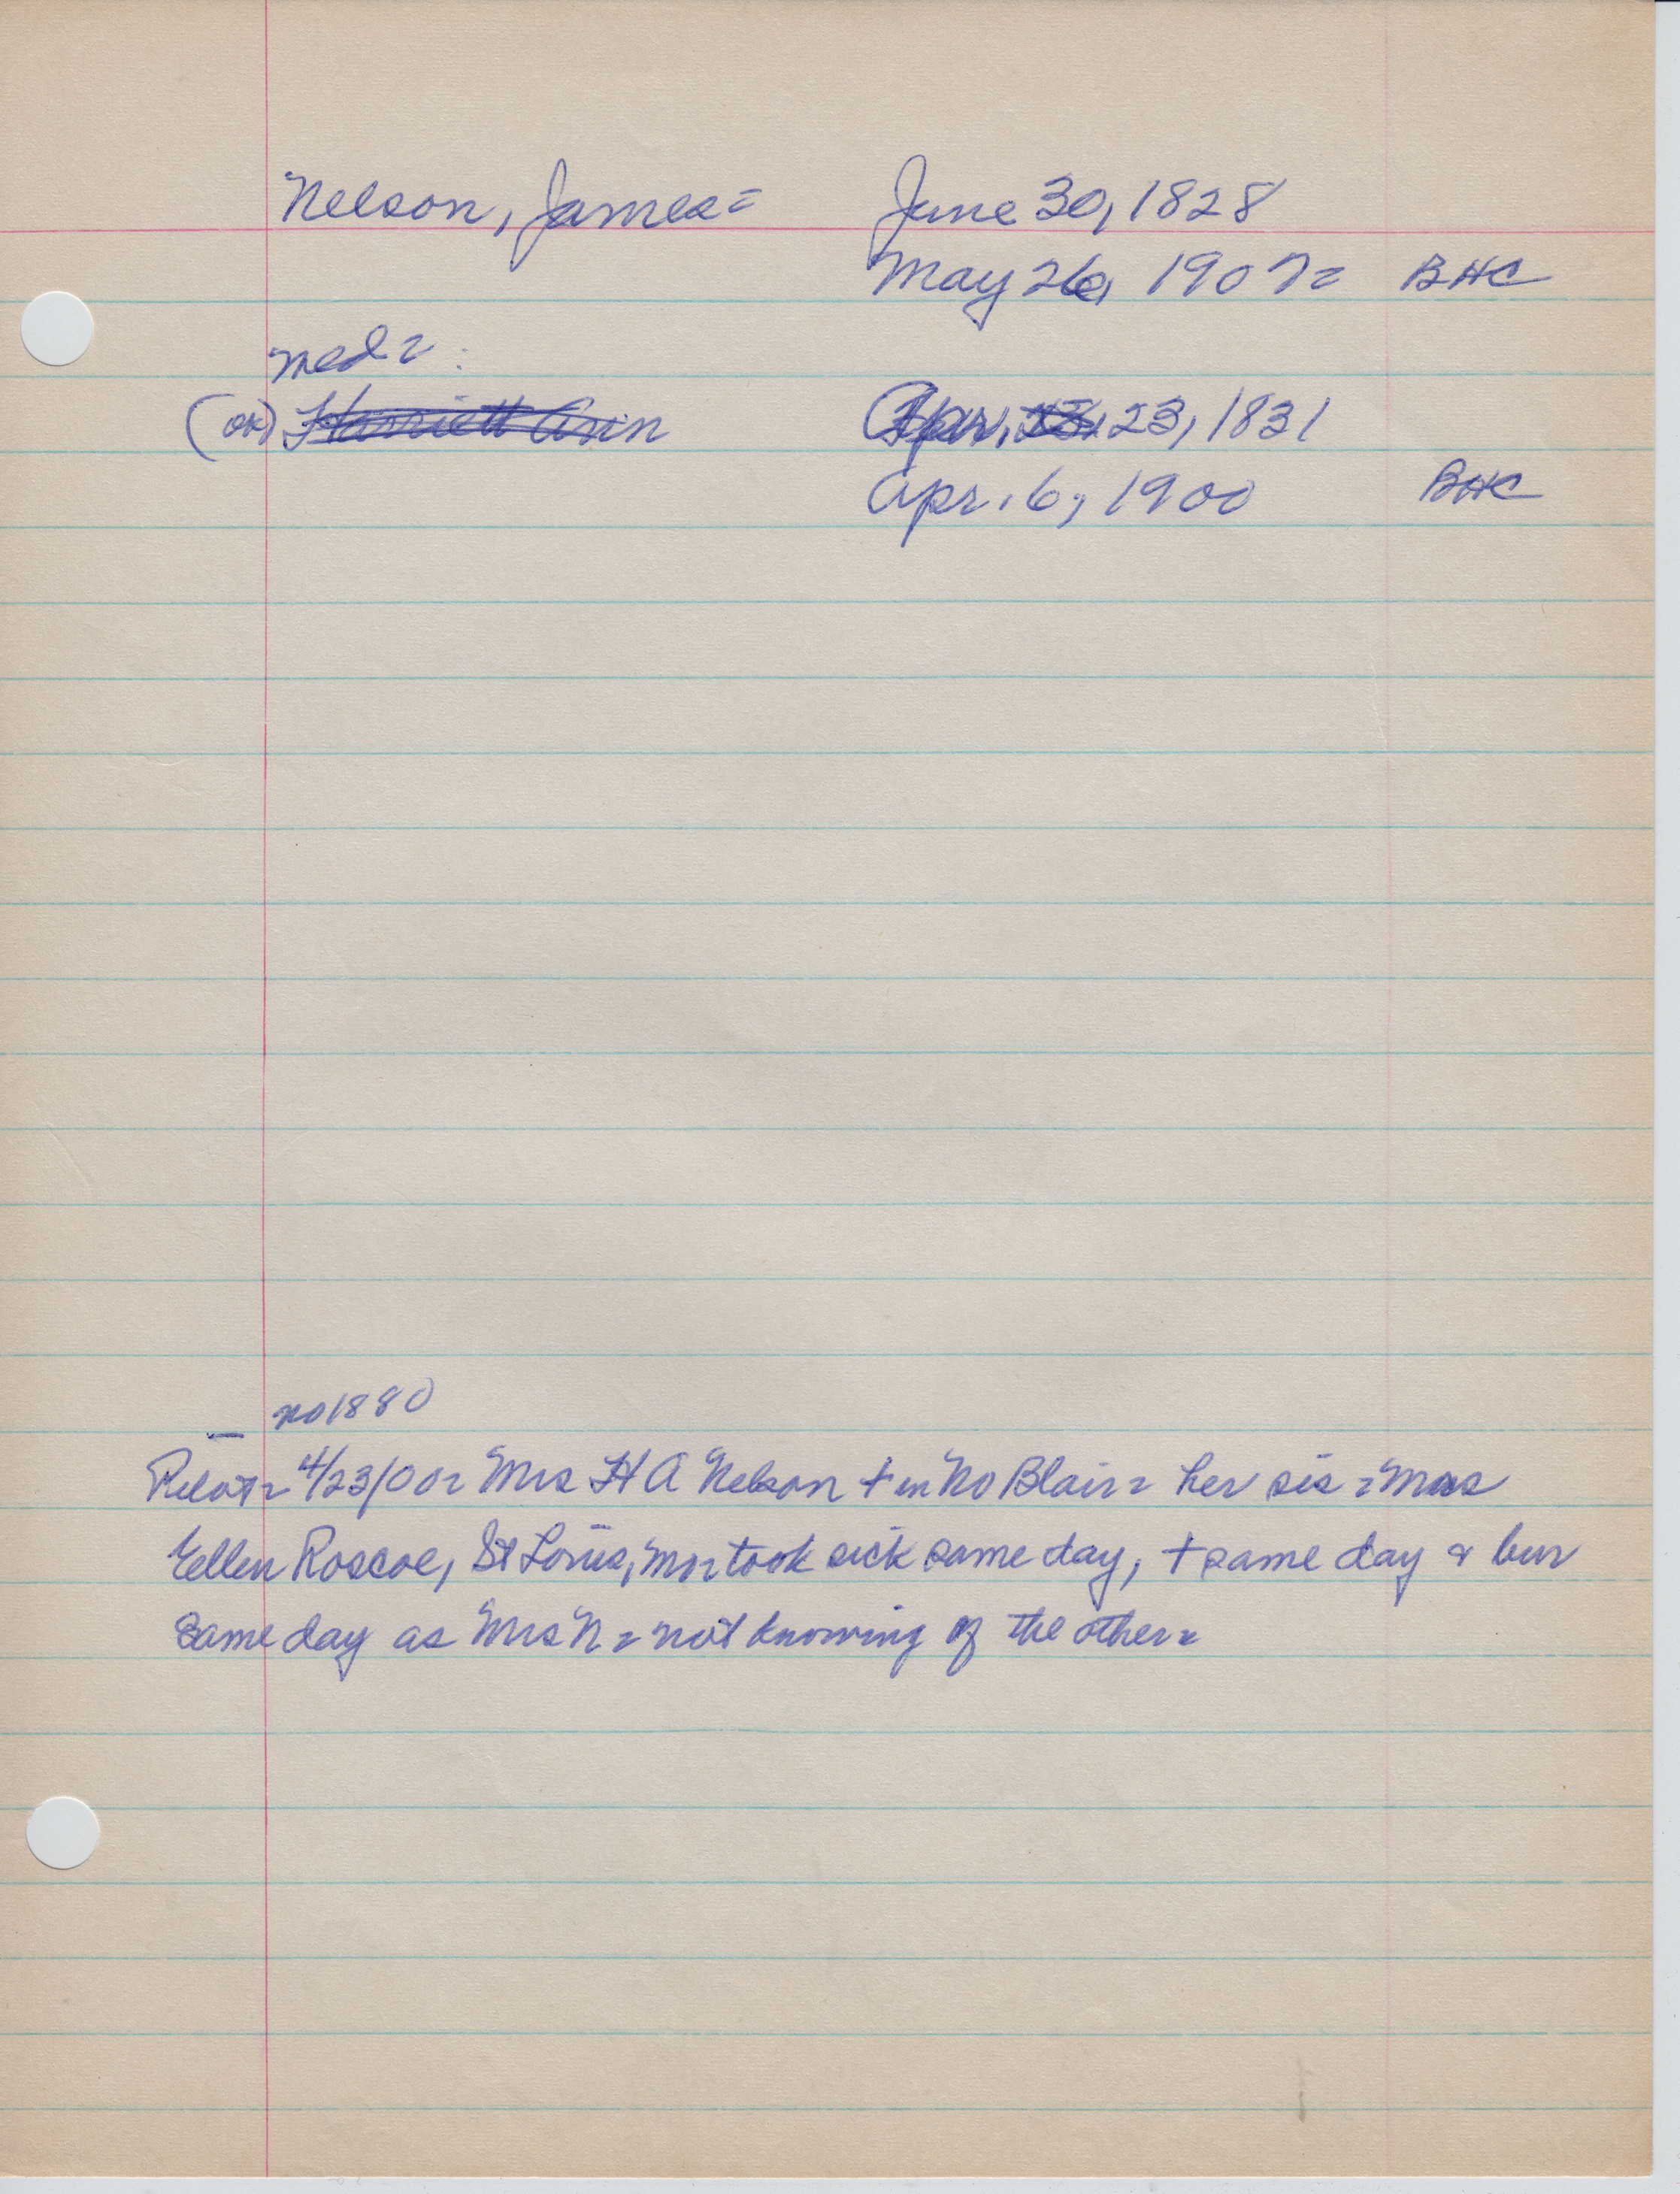 Nelson, James= June 30, 1828
May 26, 1907= BHC
med=
(ok) Harriett Ann Apr. 23, 1831
Apr. 6, 1900 BHC
no 1880
4/23/00= Mrs H A Nelson + in No Blair= her sis= Mrs
Ellen Roscoe, St Louis, Mo= took sick same day, + same day & bur
same day as Mrs N= not knowing of the other=